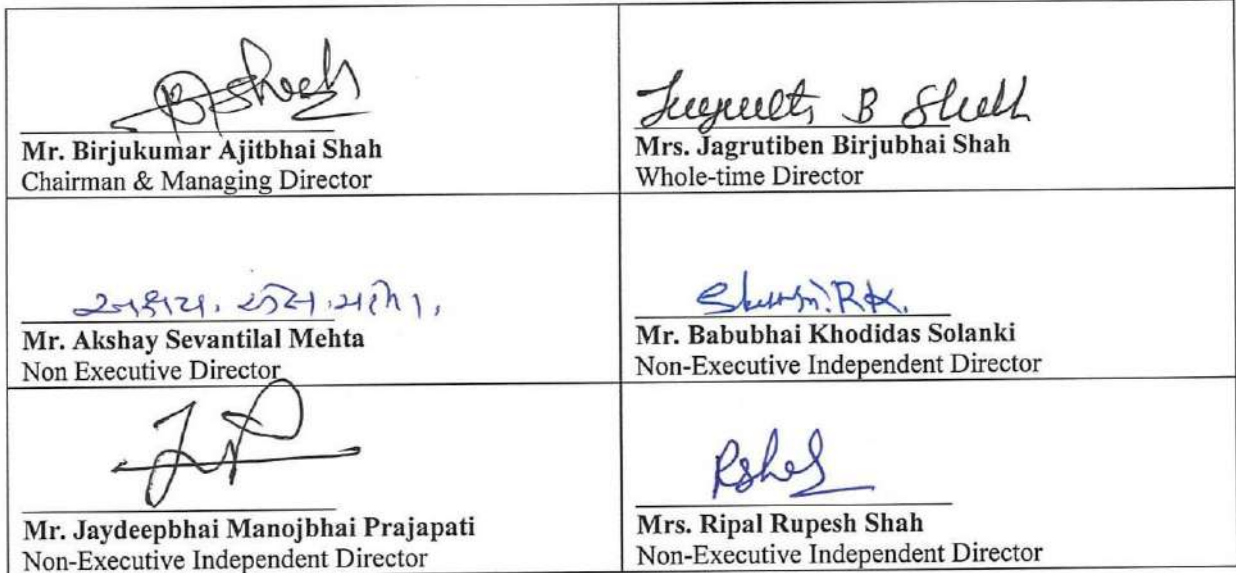 Jagruti B Shah
Mr. Birjukumar Ajitbhai Shah
Chairman & Managing Director
Mrs. Jagrutiben Birjubhai Shah
Whole-time Director
Mr. Akshay Sevantilal Mehta
Non Executive Director
Mr. Babubhai Khodidas Solanki
Non-Executive Independent Director
Mr. Jaydeepbhai Manojbhai Prajapati
Non-Executive Independent Director
Mrs. Ripal Rupesh Shah
Non-Executive Independent Director